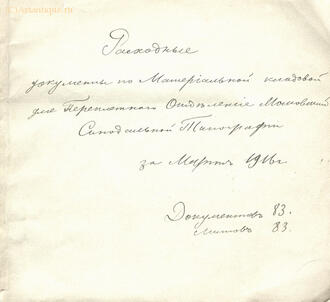 ©Artantique.ru
Расходные
документы по Матеріальной кладовой
для Переплетнаго Отдѣленія Московской
Синодальной Типографіи
за Мартъ 1916 г.
Документовъ 83.
Листовъ 83.